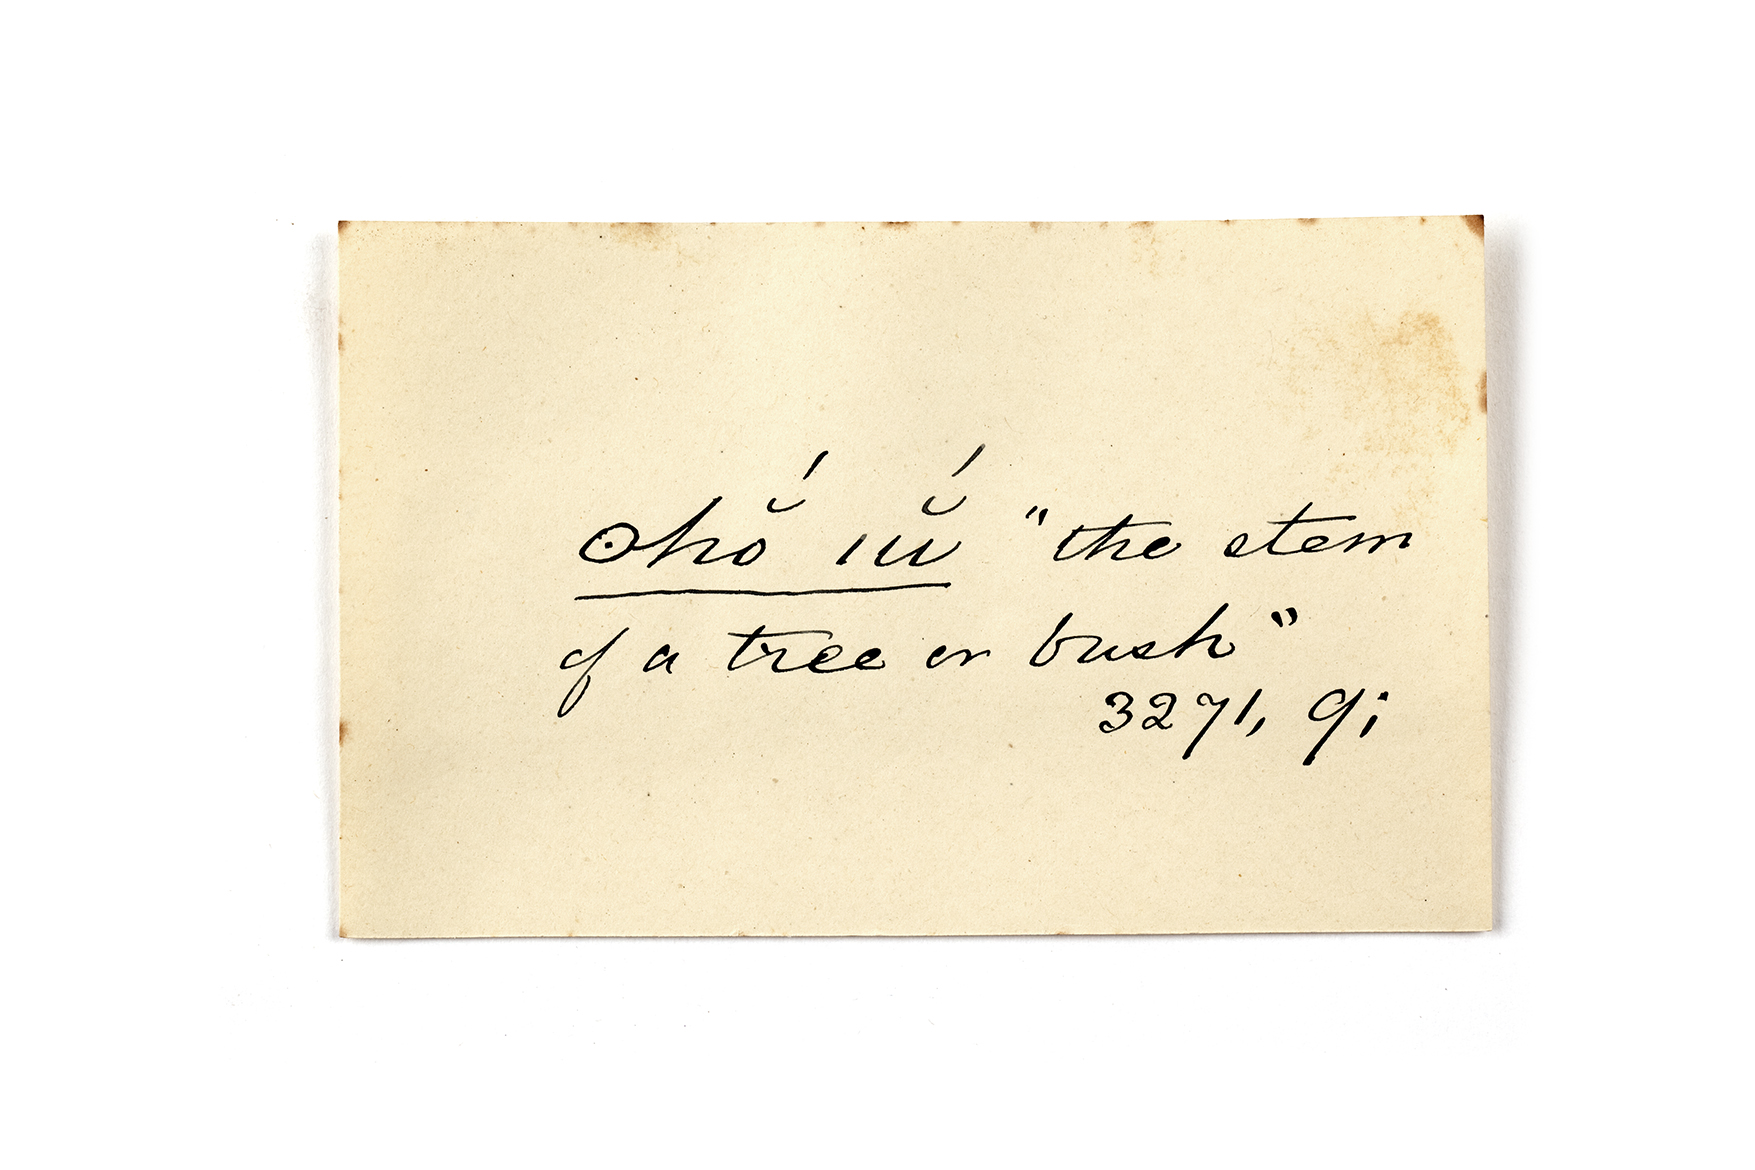 ʘhŏ́ ǀŭ́ "the stem
of a tree or bush"
3271, 9;